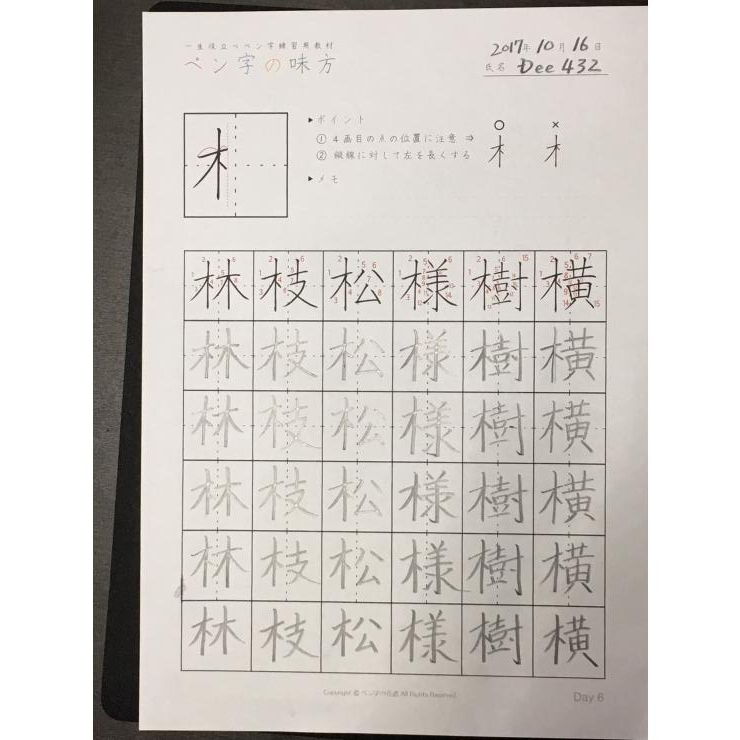 一生役立つペン字練習用教材
ペン字の味方
2017年 10月 16日
氏名 Dee 432
木
▶ポイント
① 4画目の点の位置に注意 ⇒
② 縦線に対して左を長くする
▶メモ
○ ×
木 木
林 枝 松 様 樹 横
林 枝 松 様 樹 横
林 枝 松 様 樹 横
林 枝 松 様 樹 横
林 枝 松 様 樹 横
林 枝 松 様 樹 横
Copyright © ペン字の All Rights Reserved.
Day 6